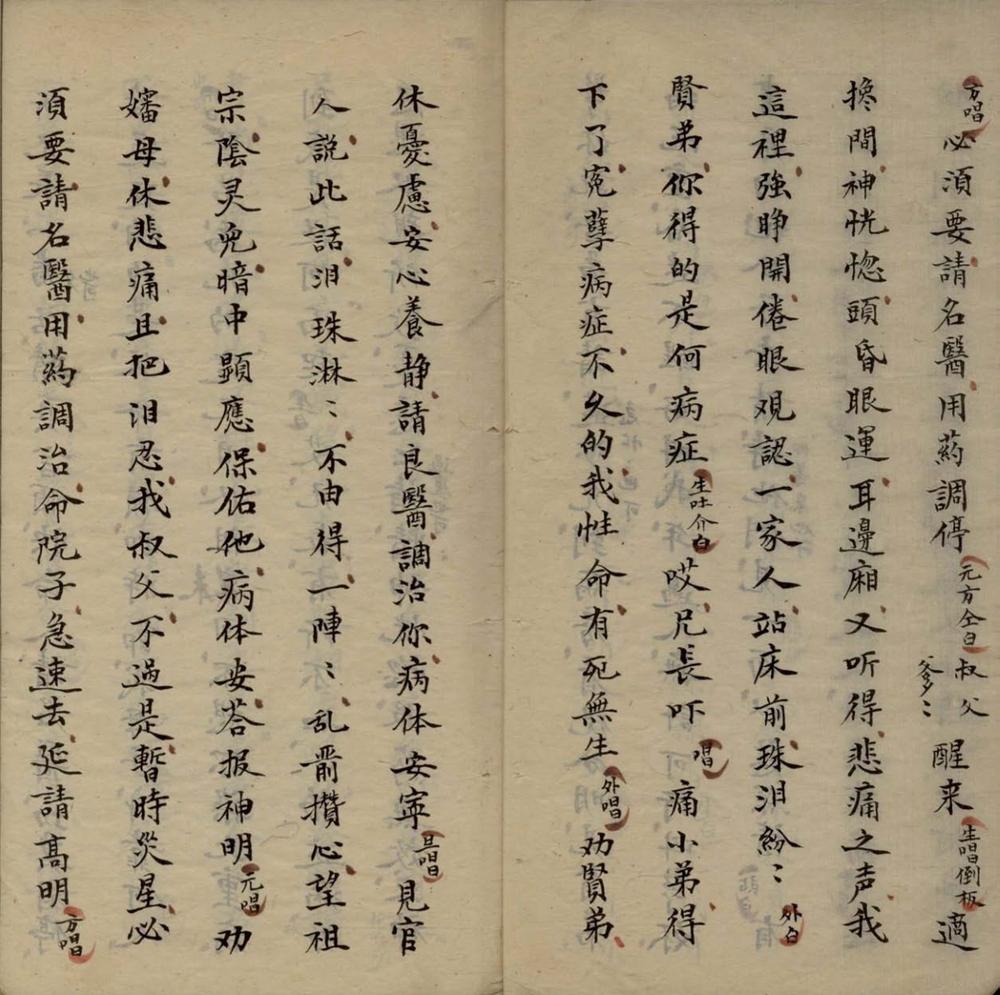 方唱必須要請名醫用葯調停元方仝白叔父爹〻醒来生唱倒板適
搀間神恍惚頭昏眼運耳邊廂又听得悲痛之声我
這裡強睁開倦眼观認一家人站床前珠泪紛〻外白
賢弟你得的是何病症生吐介白哎兄長吓唱痛小弟得
下了冤孽病症不久的我性命有死無生外唱劝賢弟
休憂慮安心養静請良醫調治你病体安寜旦唱見官
人説此話泪珠淋〻不由得一陣〻乱箭攢心望祖
宗陰灵兒暗中顕應保佑他病体安荅报神明元唱劝
嬸母休悲痛且把泪忍我叔父不過是暫時災星必
須要請名醫用葯調治命院子急速去延請髙明方唱